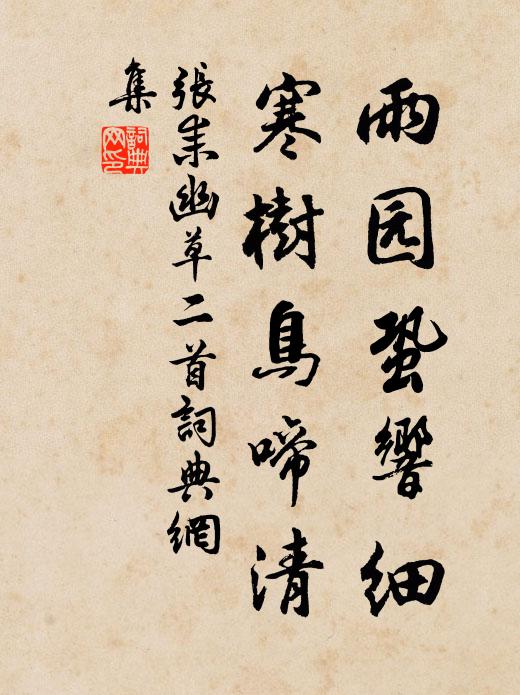 雨园蛩響細
寒樹鳥啼清
張耒幽草二首詞典網
集
詞典
网印